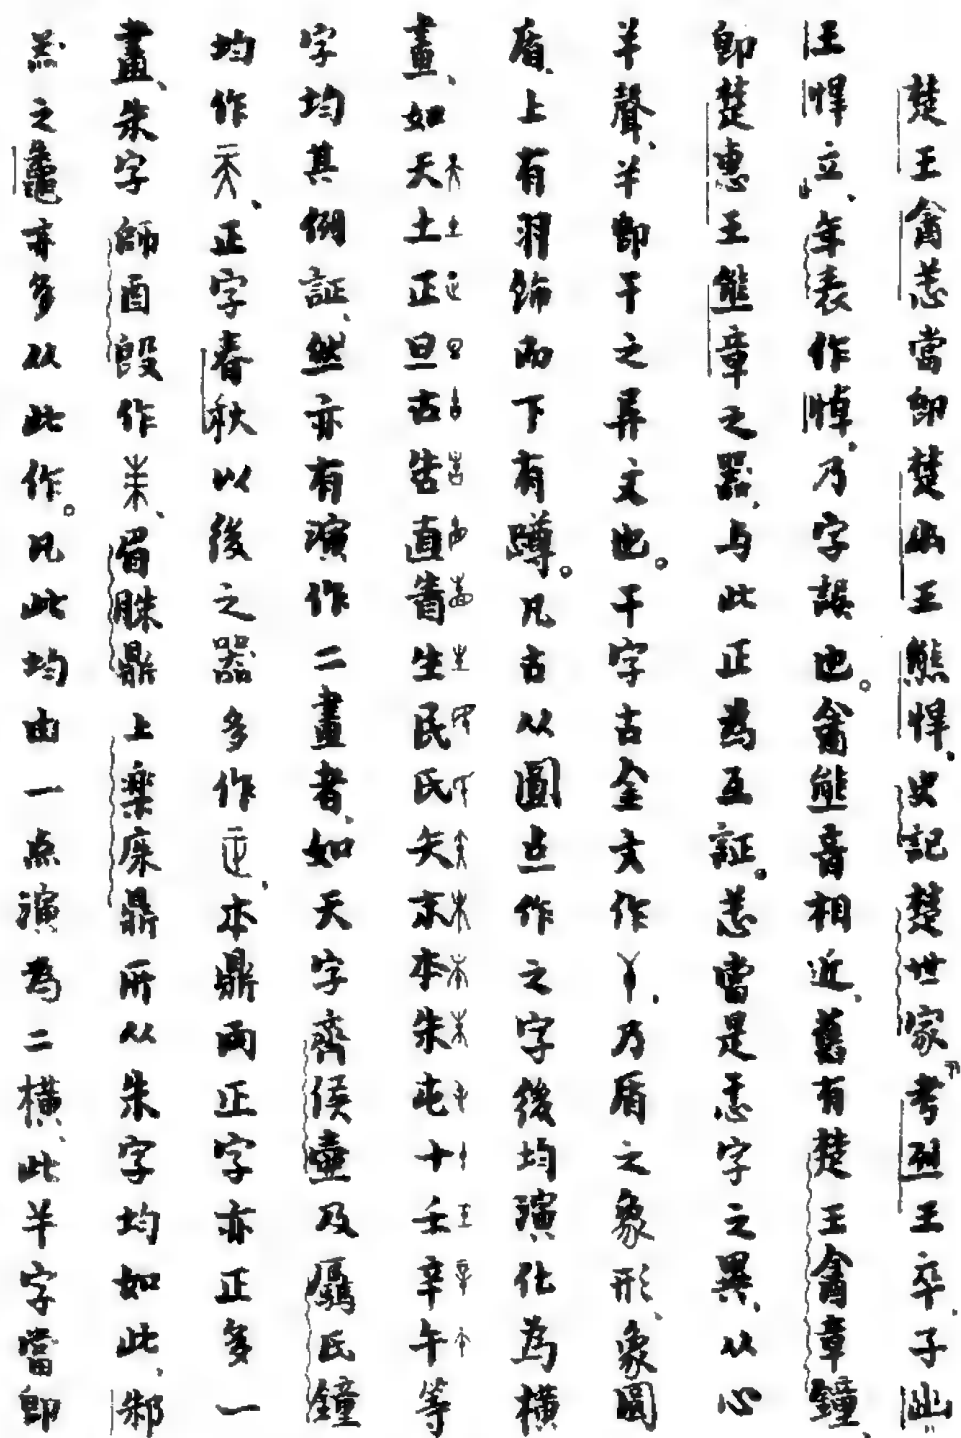 楚王酓忎當即楚幽王熊悍、史記楚世家「考烈王卒、子幽
王悍立」、年表作悼、乃字誤也。酓熊音相近、舊有楚王酓章鐘、
即楚惠王熊章之器、与此正為互証。忎當是恚字之異、从心
𢆉聲、𢆉即干之異文也。干字古金文作丫、乃盾之象形、象圓
盾、上有羽飾而下有蹲。凡古从圓点作之字後均演化為橫
畫、如天土正旦古告直啬生民氏矢末本朱屯十壬辛午等
字均其例証、然亦有演作二畫者、如天字齊侯壺及屭氏鐘
均作、正字春秋以後之器多作、本鼎兩正字亦正多一
畫、朱字師酉𣪘作、眉䀼鼎上樂床鼎所从朱字均如此、邾
器之鼄亦多从此作。凡此均由一点演為二橫、此𢆉字當即